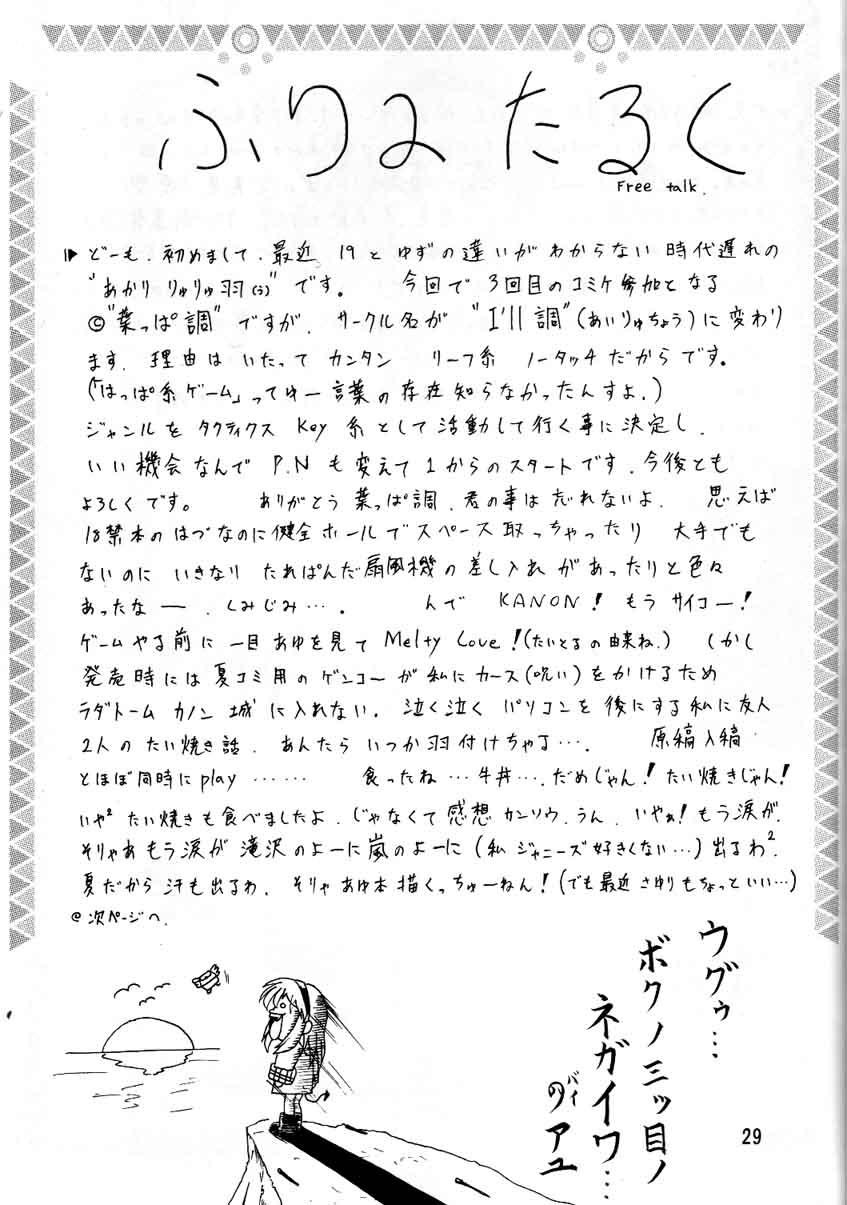 ふりーたるく
Free talk.
どーも、初めまして、最近 19とゆずの違いがわからない時代遅れの
"あかり りゅりゅ羽(う)"です。 今回で3回目のコミケ参加となる
©"葉っぱ調"ですが、サークル名が "I'll調"(あいりゅちょう)に変わり
ます、理由はいたってカンタン リーフ系 ノータッチだからです。
(「はっぱ系ゲーム」ってゆー言葉の存在知らなかったんすよ。)
ジャンルをタクティクス Key系として活動して行く事に決定し、
いい機会なんで P.Nも変えて1からのスタートです、今後とも
よろしくです。 ありがとう葉っぱ調、君の事は忘れないよ、 思えば
18禁本のはづなのに健全ホールでスペース取っちゃったり 大手でも
ないのに いきなり たれぱんだ扇風機の差し入れがあったりと色々
あったなー、しみじみ…。 んで KANON! もうサイコー!
ゲームやる前に一目あゆを見て Melty Love!(たいとるの由来ね。) しかし
発売時には夏コミ用のゲンコーが私にカース(呪い)をかけるため
ラダトーム カノン 城に入れない、泣く泣く パソコンを後にする私に友人
2人のたい焼き話、あんたらいつか羽付けちゃる…。 原稿入稿
とほぼ同時にplay…… 食ったね…牛丼…、だめじゃん!たい焼きじゃん!
いや² たい焼きも食べましたよ、じゃなくて感想 カンソウ、うん、いやぁ!もう涙が、
そりゃあもう涙が滝沢のよーに嵐のよーに(私ジャニーズ好きくない…)出るわ²、
夏だから汗も出るわ、そりゃあゆ本描くっちゅーねん!(でも最近さゆりもちょっといい…)
@次ページへ、
ウグゥ…
ボクノ三ッ目ノ
ネガイワ…
バイ
アユ
29